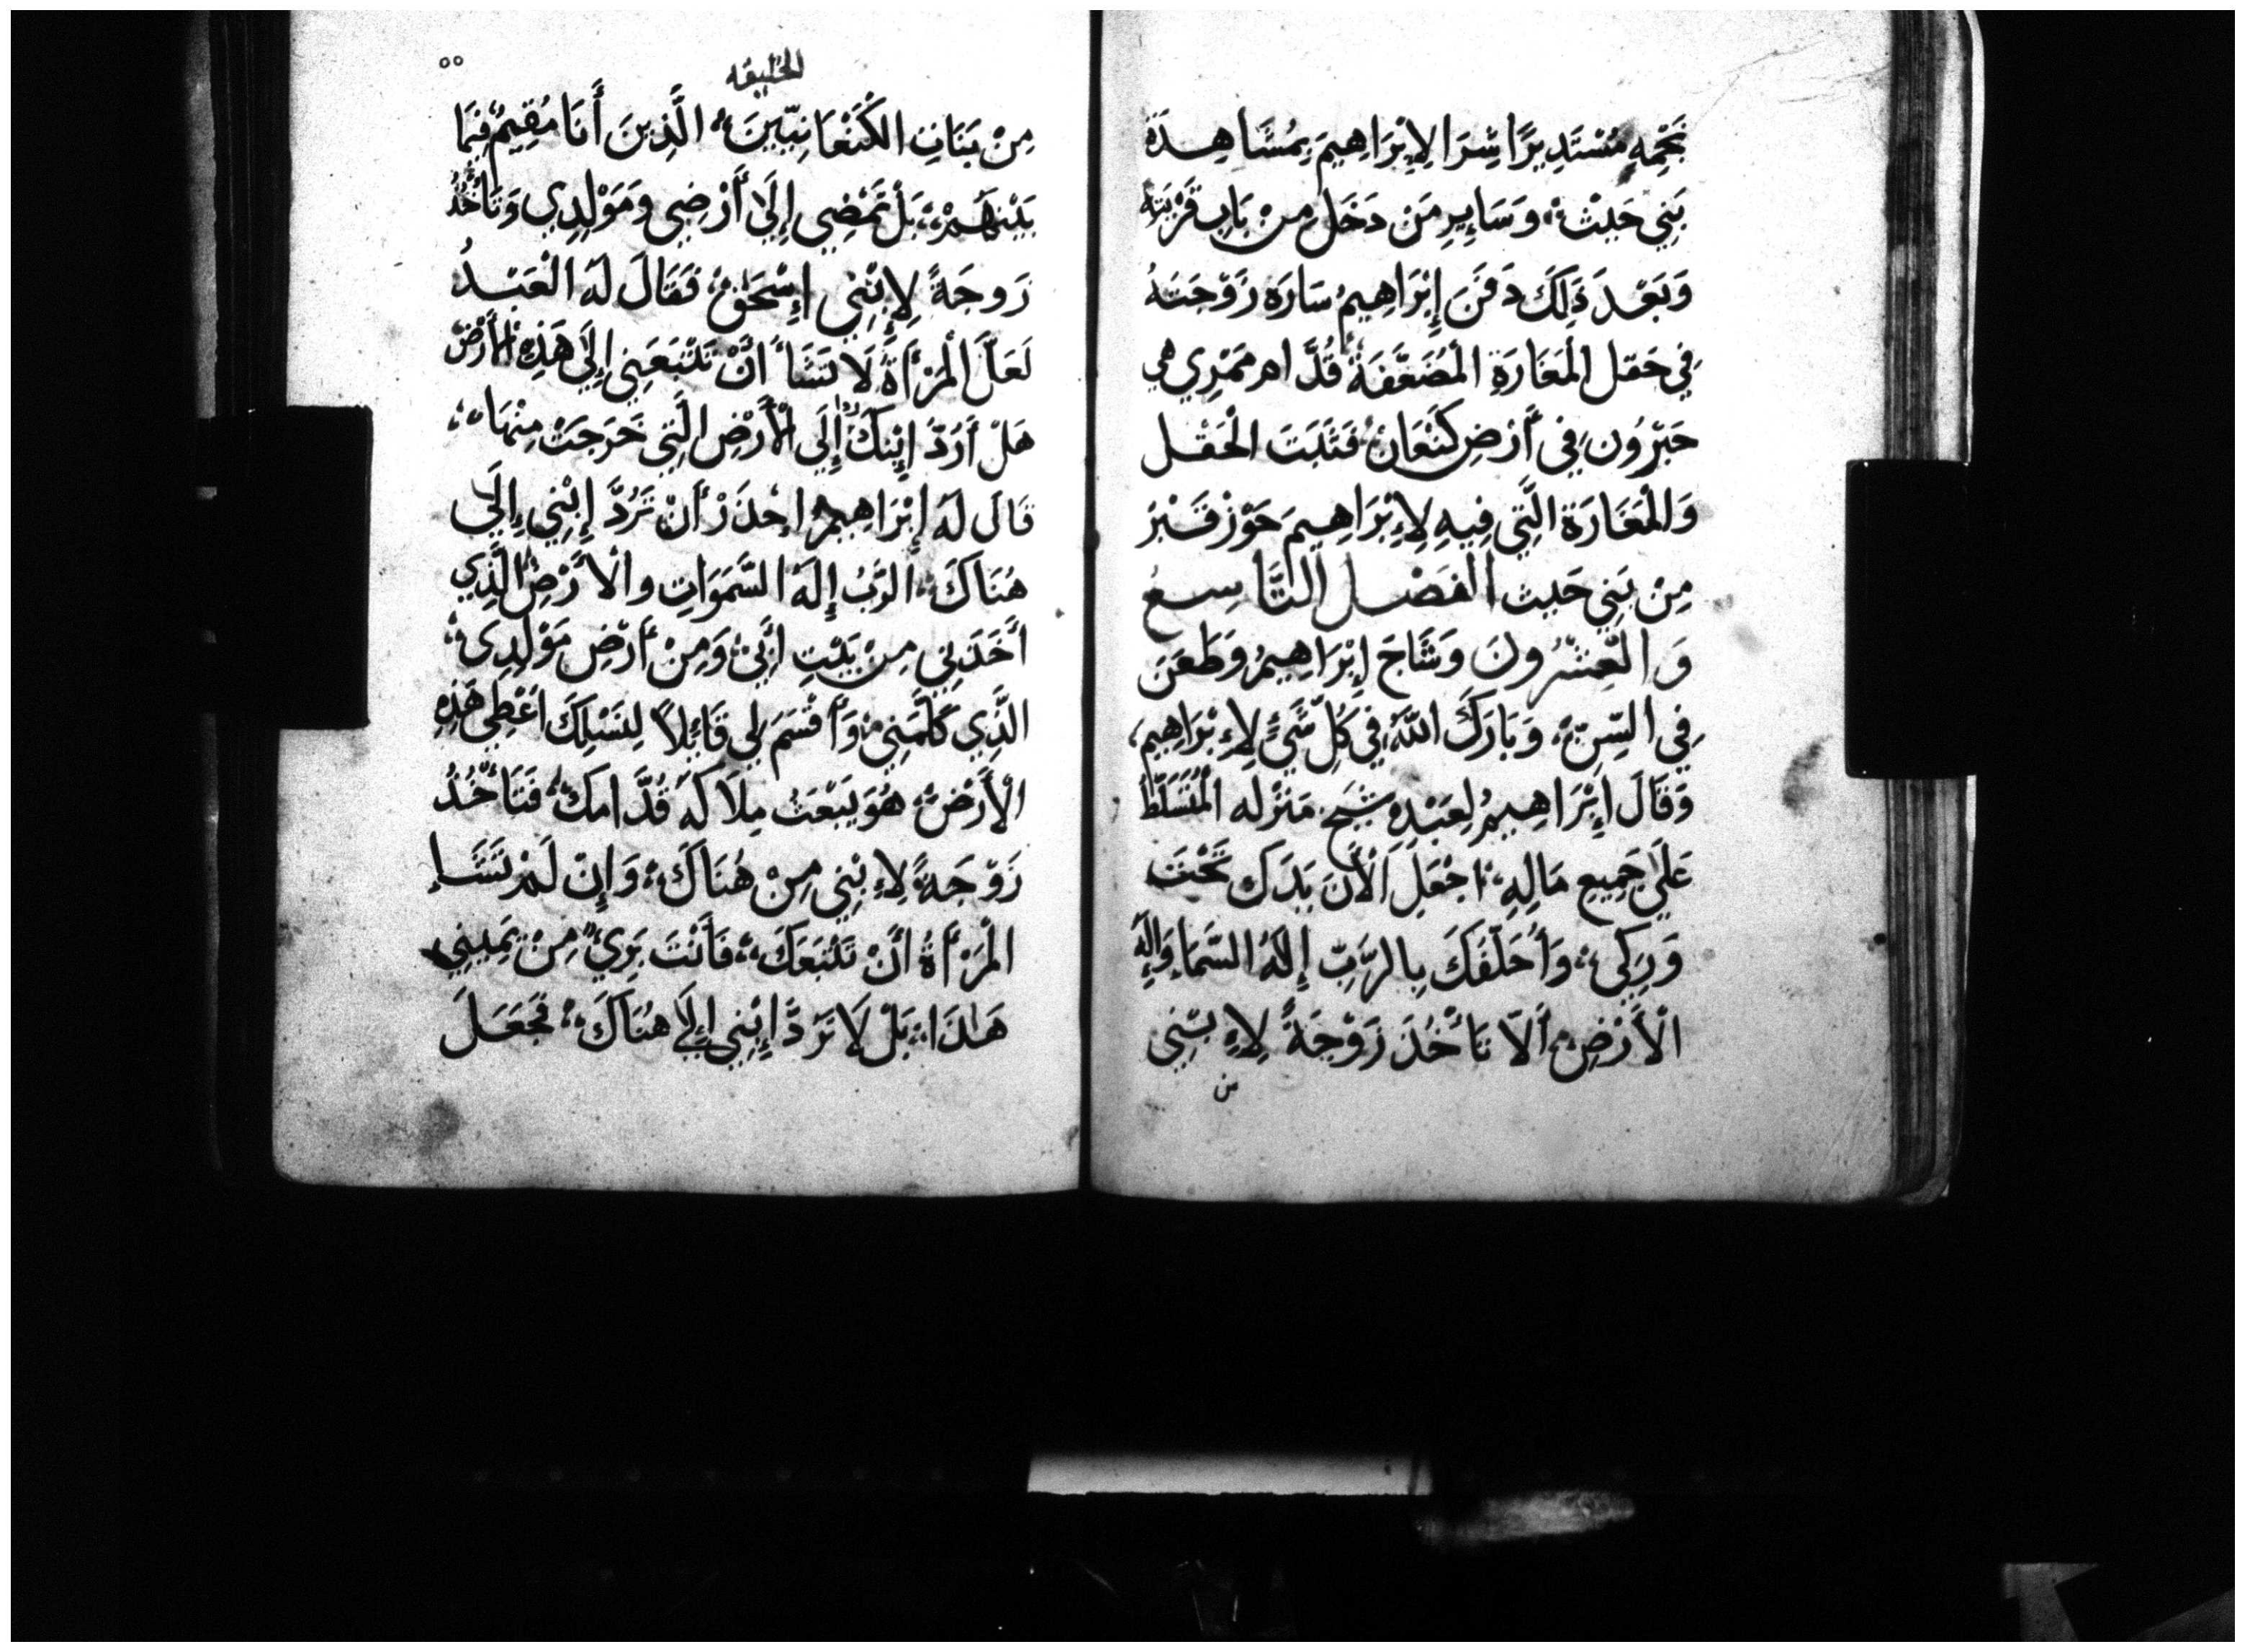 تخمه مُسْتَدِيرًا شِرَا لِإِبْرَاهِيمَ بِمُشَاهِدَة
بَنِي حَيِثْ، وَسَايِرِ مَنْ دَخَل مِنْ بَابِ قَرْيَتِهِ
وَبَعْدَ ذَلِكَ دَفَنَ إِبْرَاهِيمُ سَارَه زَوْجَتَهُ
فِي حَقل الْمَغَارَةِ الْمُضَعَّفَةُ قُدَّام مَمْرِي هي
حَبْرُون فِي أَرْضِ كَنْعَانْ، فَثَبَتَ الْحَقْل
وَالْمَغَارَة الَّتِي فِيهِ لِإِبْرَاهِيمَ حَوْز قَبْرْ
مِنْ بَنِي حَيِث الفَصْل التَّاسِعُ
وَالعِشْرُونَ وَشَاخَ إِبْرَاهِيمُ وَطَعَنَ
فِي السِّنِّ، وَبَارَكَ اللَّهُ فِي كُلِّ شَيْءٍ لِإِبْرَاهِيم،
وَقَالَ إِبْرَاهِيمُ لِعَبْدِهِ شَيْخ مَنْزله الْمُتَسَلِّطُ
عَلَى جَمِيعِ مَالِهِ، اجْعَلِ الْأَنَ يَدَك تَحْتَ
وَرِكِي، وَأُحَلِّفَكَ بِالرَّبِّ إِلَهُ السَّمَاءِ وَإِلَهِ
الْأَرْضِ، أَلَّا تَأْخُذَ زَوْجَةً لِإِبْنِي
من
الخليقه
٥٥
مِنْ بَنَاتِ الكَنْعَانِيِّينَ، الَّذِينَ أَنَا مُقِيمٌ فِيمَا
بَيْنَهُمْ، بَلْ تَمْضِي إِلَى أَرْضِي وَمَوْلِدِي وَتَأْخُذُ
زَوجَةً لِإِبْنِي إِسْحَقْ، فَقَالَ لَهُ الْعَبْدُ
لَعَلَّ الْمَرْأَةَ لَا تَشَأ أَنْ تَتْبَعَنِي إِلَى هَذِهِ الْأَرْضْ
هَلْ أَرُدّ إِبْنكَ إِلَى الْأَرْضِ الَّتِي خَرَجَتْ مِنْهَا،
قَالَ لَهُ إِبْرَاهِيمُ احْذَرْ أَنْ تَرُدَّ إِبْنِي إِلَى
هُنَاكَ، الرَّبُ إِلَهُ السَّمَوَاتِ وَالأَرْضِ الَّذِي
أَخَذَنِي مِنْ بَيْتِ أَبِيْ، وَمِنْ أَرْضِ مَوْلِدِي،
الَّذِي كَلَّمَنِي، وَأَقْسَمَ لِي قَائِلاً لِنَسْلِكَ اعْطِي هَذِهِ
الْأَرْضْ، هُوَ يَبْعَثُ مِلَاكَهُ قُدَّامَكْ، فَتَأْخُذُ
زَوْجَةً لِإِبْنِي مِنْ هُنَاكَ، وَإِنْ لَمْ تَشَاء
الْمَرْأَةُ أَنْ تَتْبَعَكَ، فَأَنْتَ بَرِيٌ مِنْ يَمِينِي
هَذَا، بَلْ لَا تَرَدَّ إِبْنِي إِلَى هُنَاكَ، فَجَعَلَ